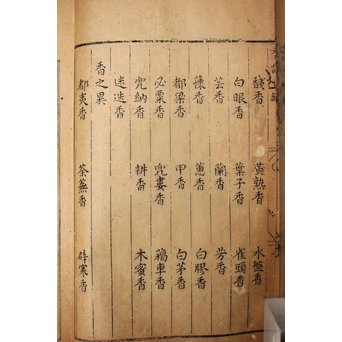 馢香 黃熟香 水盤香
白眼香 葉子香 雀頭香
芸香 蘭香 芳香
蘹香 蕙香 白膠香
都梁香 甲香 白茅香
必粟香 兜婁香 藕車香
兜納香 耕香 木蜜香
迷迭香
香之異
都夷香 荃蕪香 辟寒香